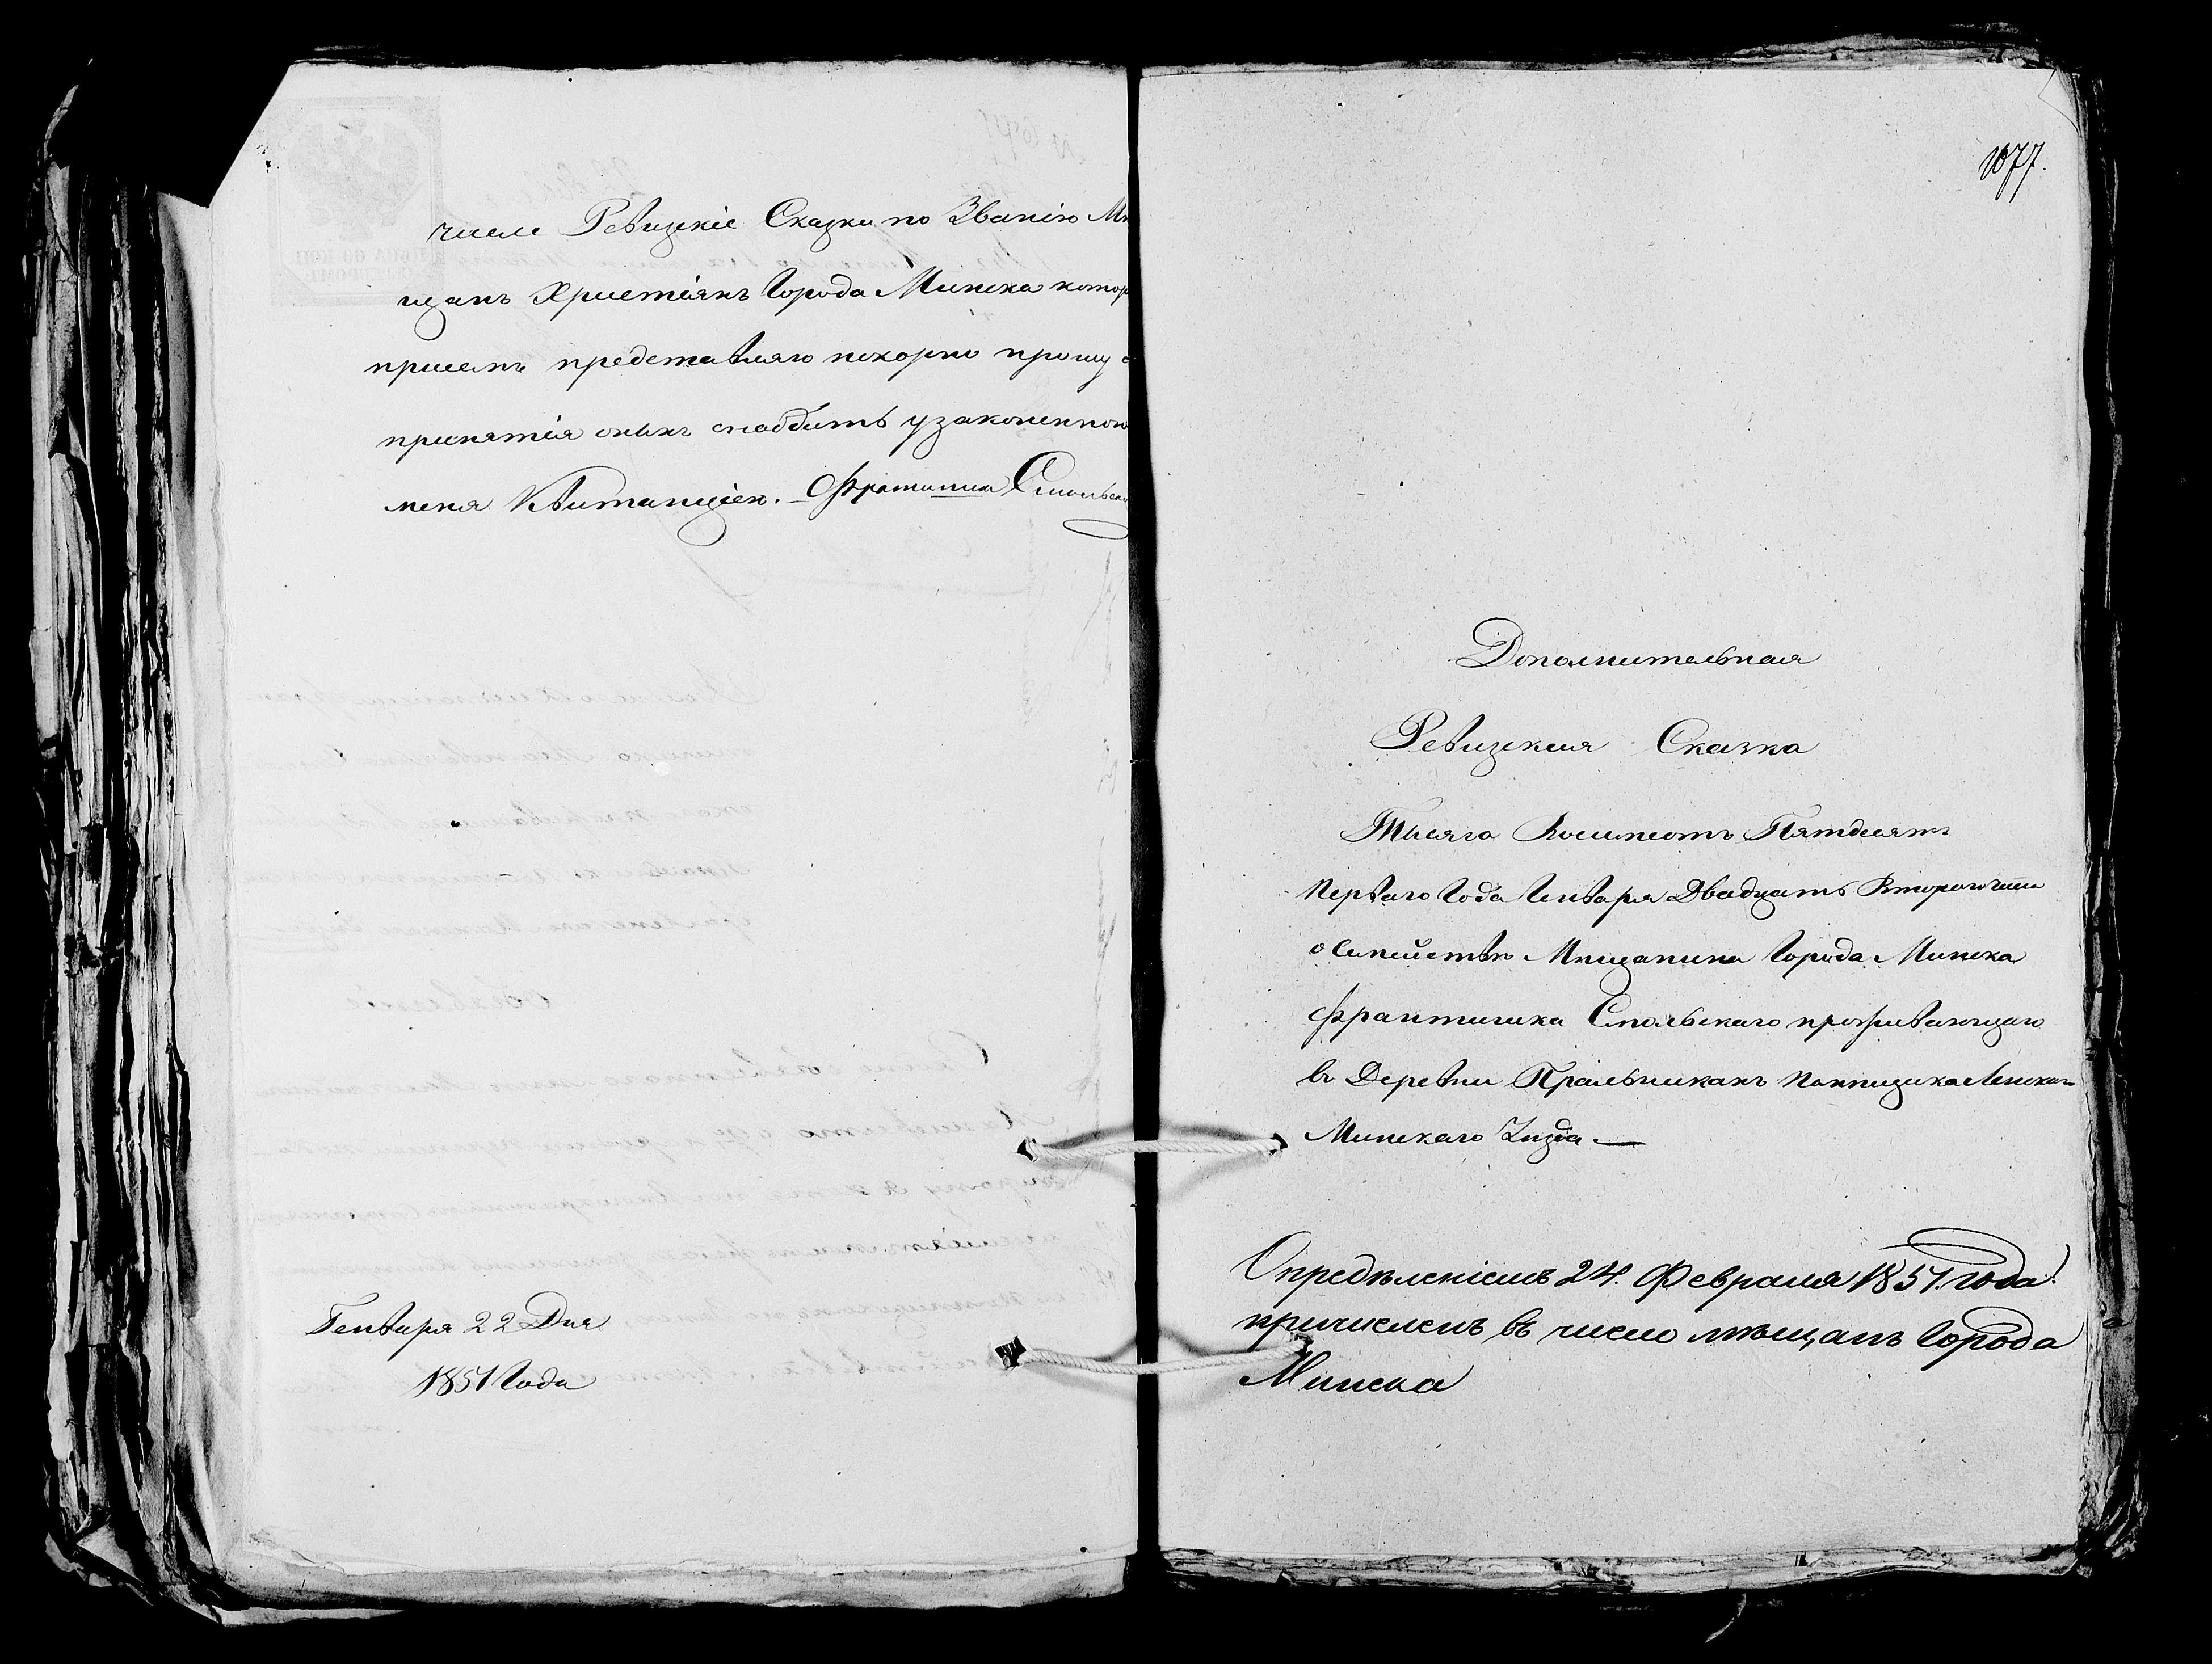 числе Ревизскіе Сказки по Званію Мѣ
щанъ Христіянъ Города Минска котор
присемъ представляю покорно прошу
принятія оныхъ снабдить узаконенною
меня Квитанціею. Францишка Смольск
Генваря 22 Дня
1851 Года
1077.
Дополнительная
Ревизская Сказка
Тысяча Восемсотъ Пятдесятъ
Перваго Года Генваря Двадцать Втораго
о Семействѣ Мѣщанина Города Минска
Францишка Смольскаго проживающаго
въ Деревни Помѣщика
Минскаго Уѣзда —
Опредѣленіемъ 24. Февраля 1851. года
причисленъ въ число мѣщанъ Города
Минска